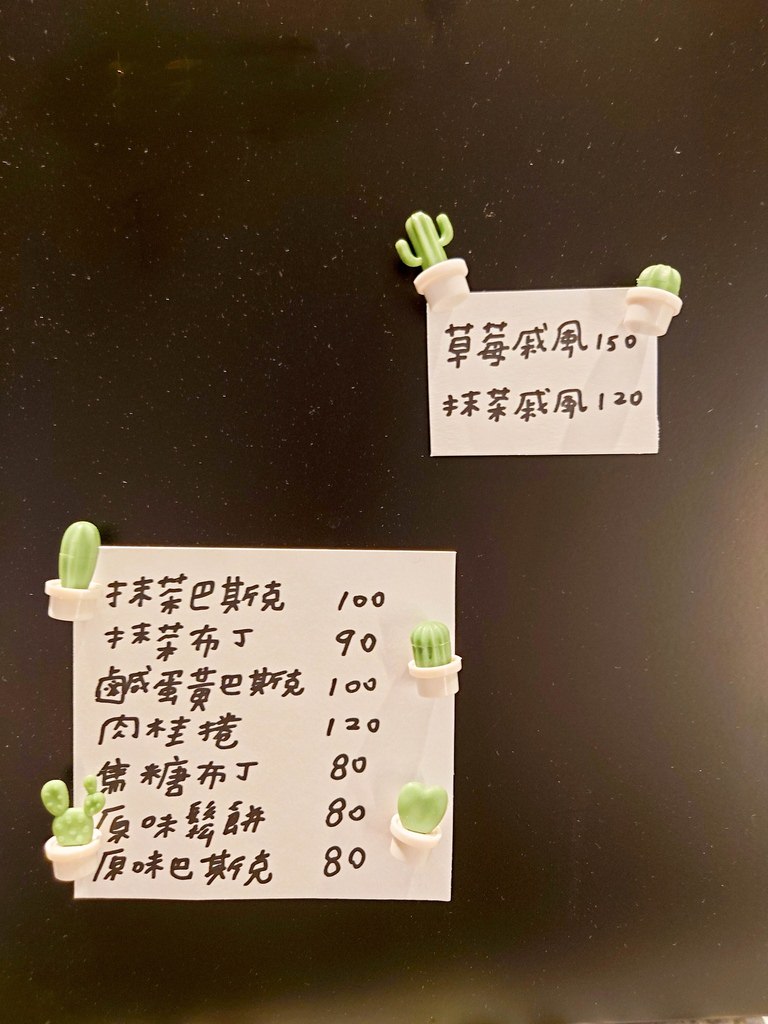 草莓戚風150
抹茶戚風120
抹茶巴斯克 100
抹茶布丁 90
鹹蛋黃巴斯克 100
肉桂捲 120
焦糖布丁 80
原味鬆餅 80
原味巴斯克 80